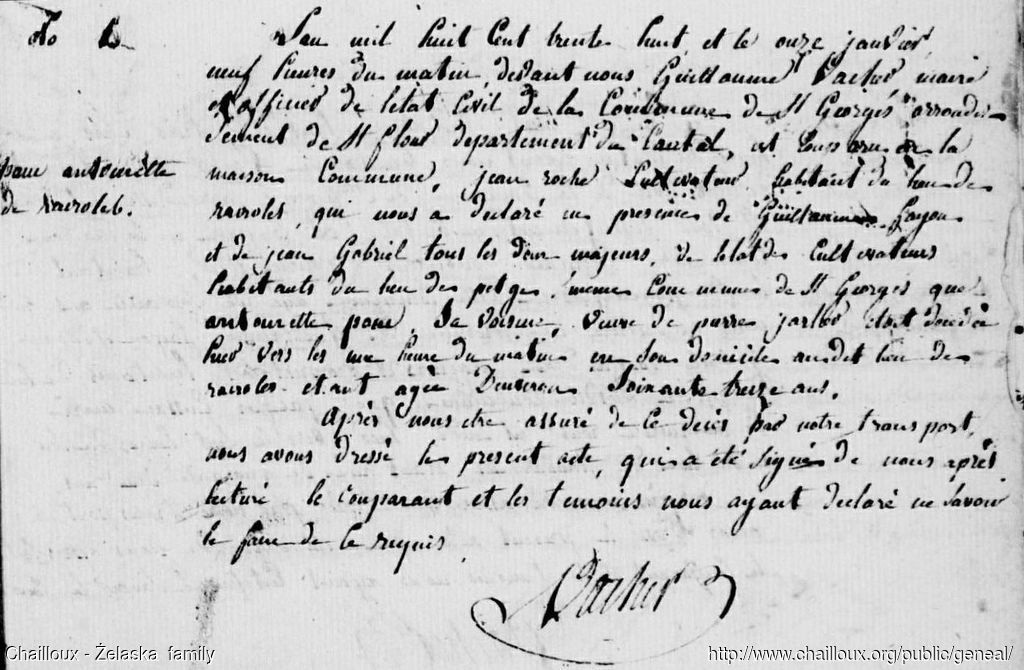 L'an mil huit cent trente huit, et le onze janvier,
neuf heures du matin, devant nous Guillaume Vacher maire
et officier de letat civil de la Commune de St Georges arrondis-
sement de St flour departement du Cantal, est comparu en la
maison Commune, jean roche Cultivateur habitant du lieu de
qui nous a declaré en presence de Guillaume
et de jean Gabriel tous les deux majeurs, de letat de Cultivateurs
habitants du lieu de même Commune de St Georges que
antoinette pau, Sa voisine, veuve de pierre est décédée
hier vers les une heure du matin en Son domicile audit lieu de
etant agée D'environ Soixante treize ans.
Après nous etre assuré de ce décès par notre transport,
nous avons dressé le present acte, qui a été Signé de nous après
lecture le comparant et les temoins nous ayant declaré ne Savoir
le faire de ce requis.
Vacher
antoinette
de
Chailloux - Żelaska family
http://www.chailloux.org/public/geneal/